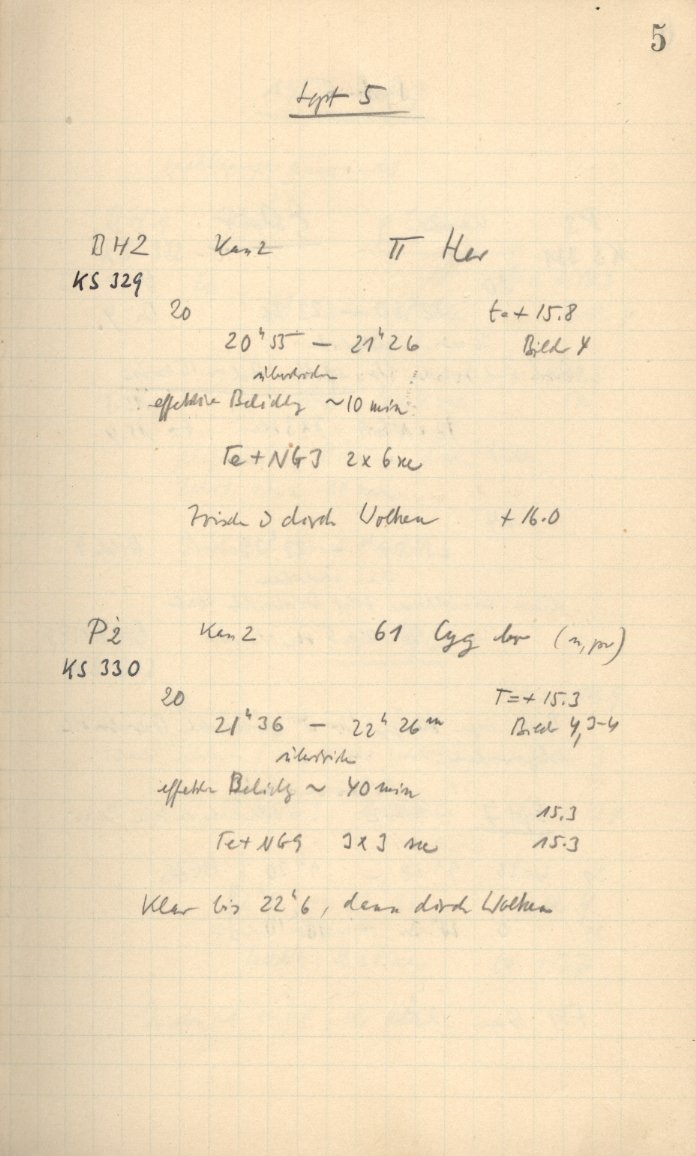 5
Sept 5
BH2 Kan2 π Her
KS 329
20 t=+15.8
20ʰ55 – 21ʰ26 Bild 4
effektive Belichtg ~10 min
Fe+NG3 2x6 sec
durch Wolken +16.0
P2 Kan2 61 Cyg
KS 330
20 T=+15.3
21ʰ36 – 22ʰ26ᵐ Bild 4, 3-4
effektive Belichtg ~ 40 min
15.3
Fe+NG9 3x3 sec 15.3
Klar bis 22ʰ6, dann durch Wolken